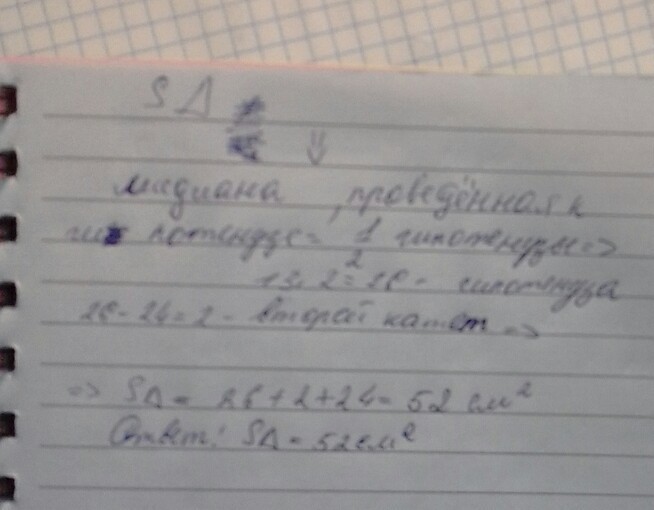 S Δ
⇓
медиана, проведённая к
гипотенузе = 1/2 гипотенузы =>
13·2 = 26 - гипотенуза
26 - 24 = 2 - второй катет =>
=> SΔ = 26 + 2 + 24 = 52 см²
Ответ: SΔ = 52 см²